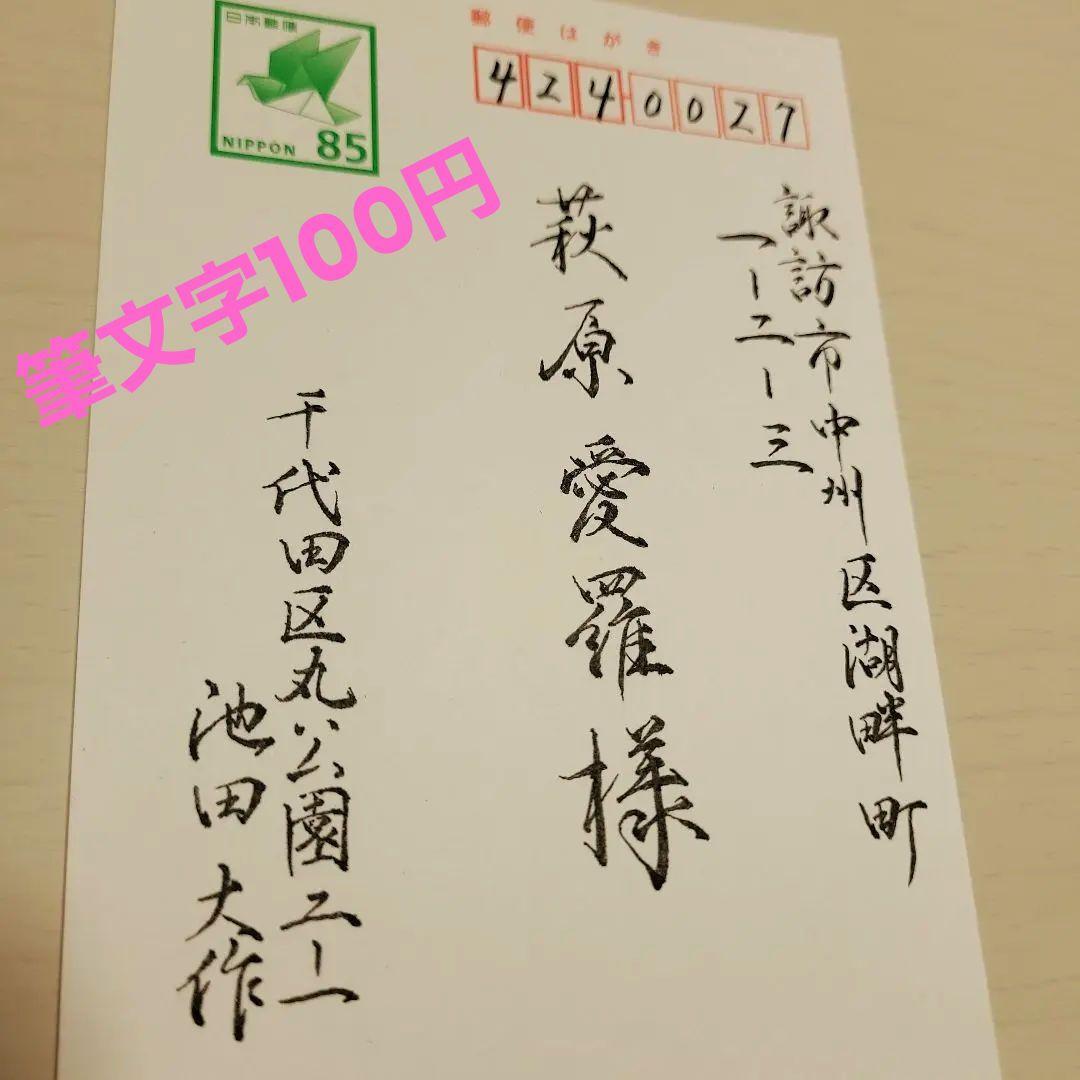 日本郵便
NIPPON 85
郵便はがき
4240027
筆文字100円
諏訪市中州区湖畔町
一ー二ー三
萩原愛羅様
千代田区丸公園二ー一
池田大作